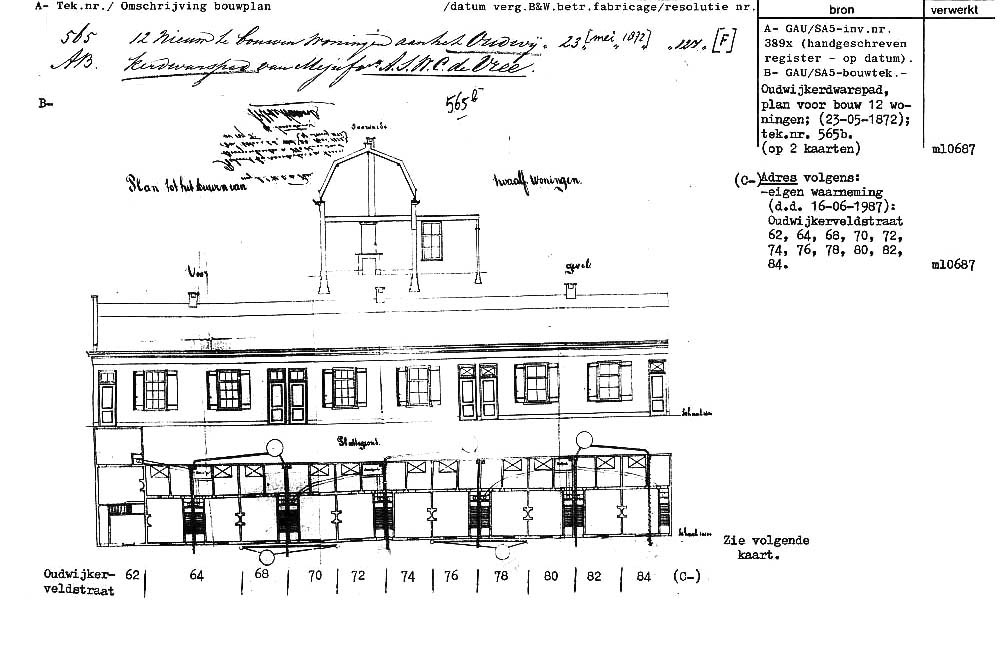 A- Tek.nr./ Omschrijving bouwplan /datum verg.B&W.betr.fabricage/resolutie nr.
bron
verwerkt
565 12 Nieuw te bouwen Woningen aan het Oudwij- 23 [mei 1872] 127. [F]
AB. kerdwarspad van Mejufvr A.S.W.C. de Vree.
A- GAU/SA5-inv.nr.
389x (handgeschreven
register - op datum).
B- GAU/SA5-bouwtek.-
Oudwijkerdwarspad,
plan voor bouw 12 wo-
ningen; (23-05-1872);
tek.nr. 565b.
(op 2 kaarten)
ml0687
B-
565b
Doorsnede
Plan tot het bouwen van
twaalf Woningen.
(C-) Adres volgens:
-eigen waarneming
(d.d. 16-06-1987):
Oudwijkerveldstraat
62, 64, 68, 70, 72,
74, 76, 78, 80, 82,
84.
ml0687
Voor
gevel
Plattegrond.
Zie volgende
kaart.
Oudwijker-
veldstraat
62 | 64 | 68 | 70 | 72 | 74 | 76 | 78 | 80 | 82 | 84 (C-)